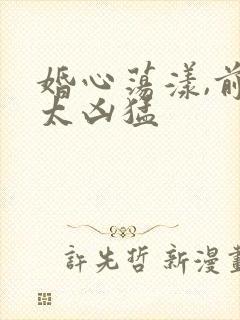 婚心荡漾,前
太凶猛
許先哲 新漫畫